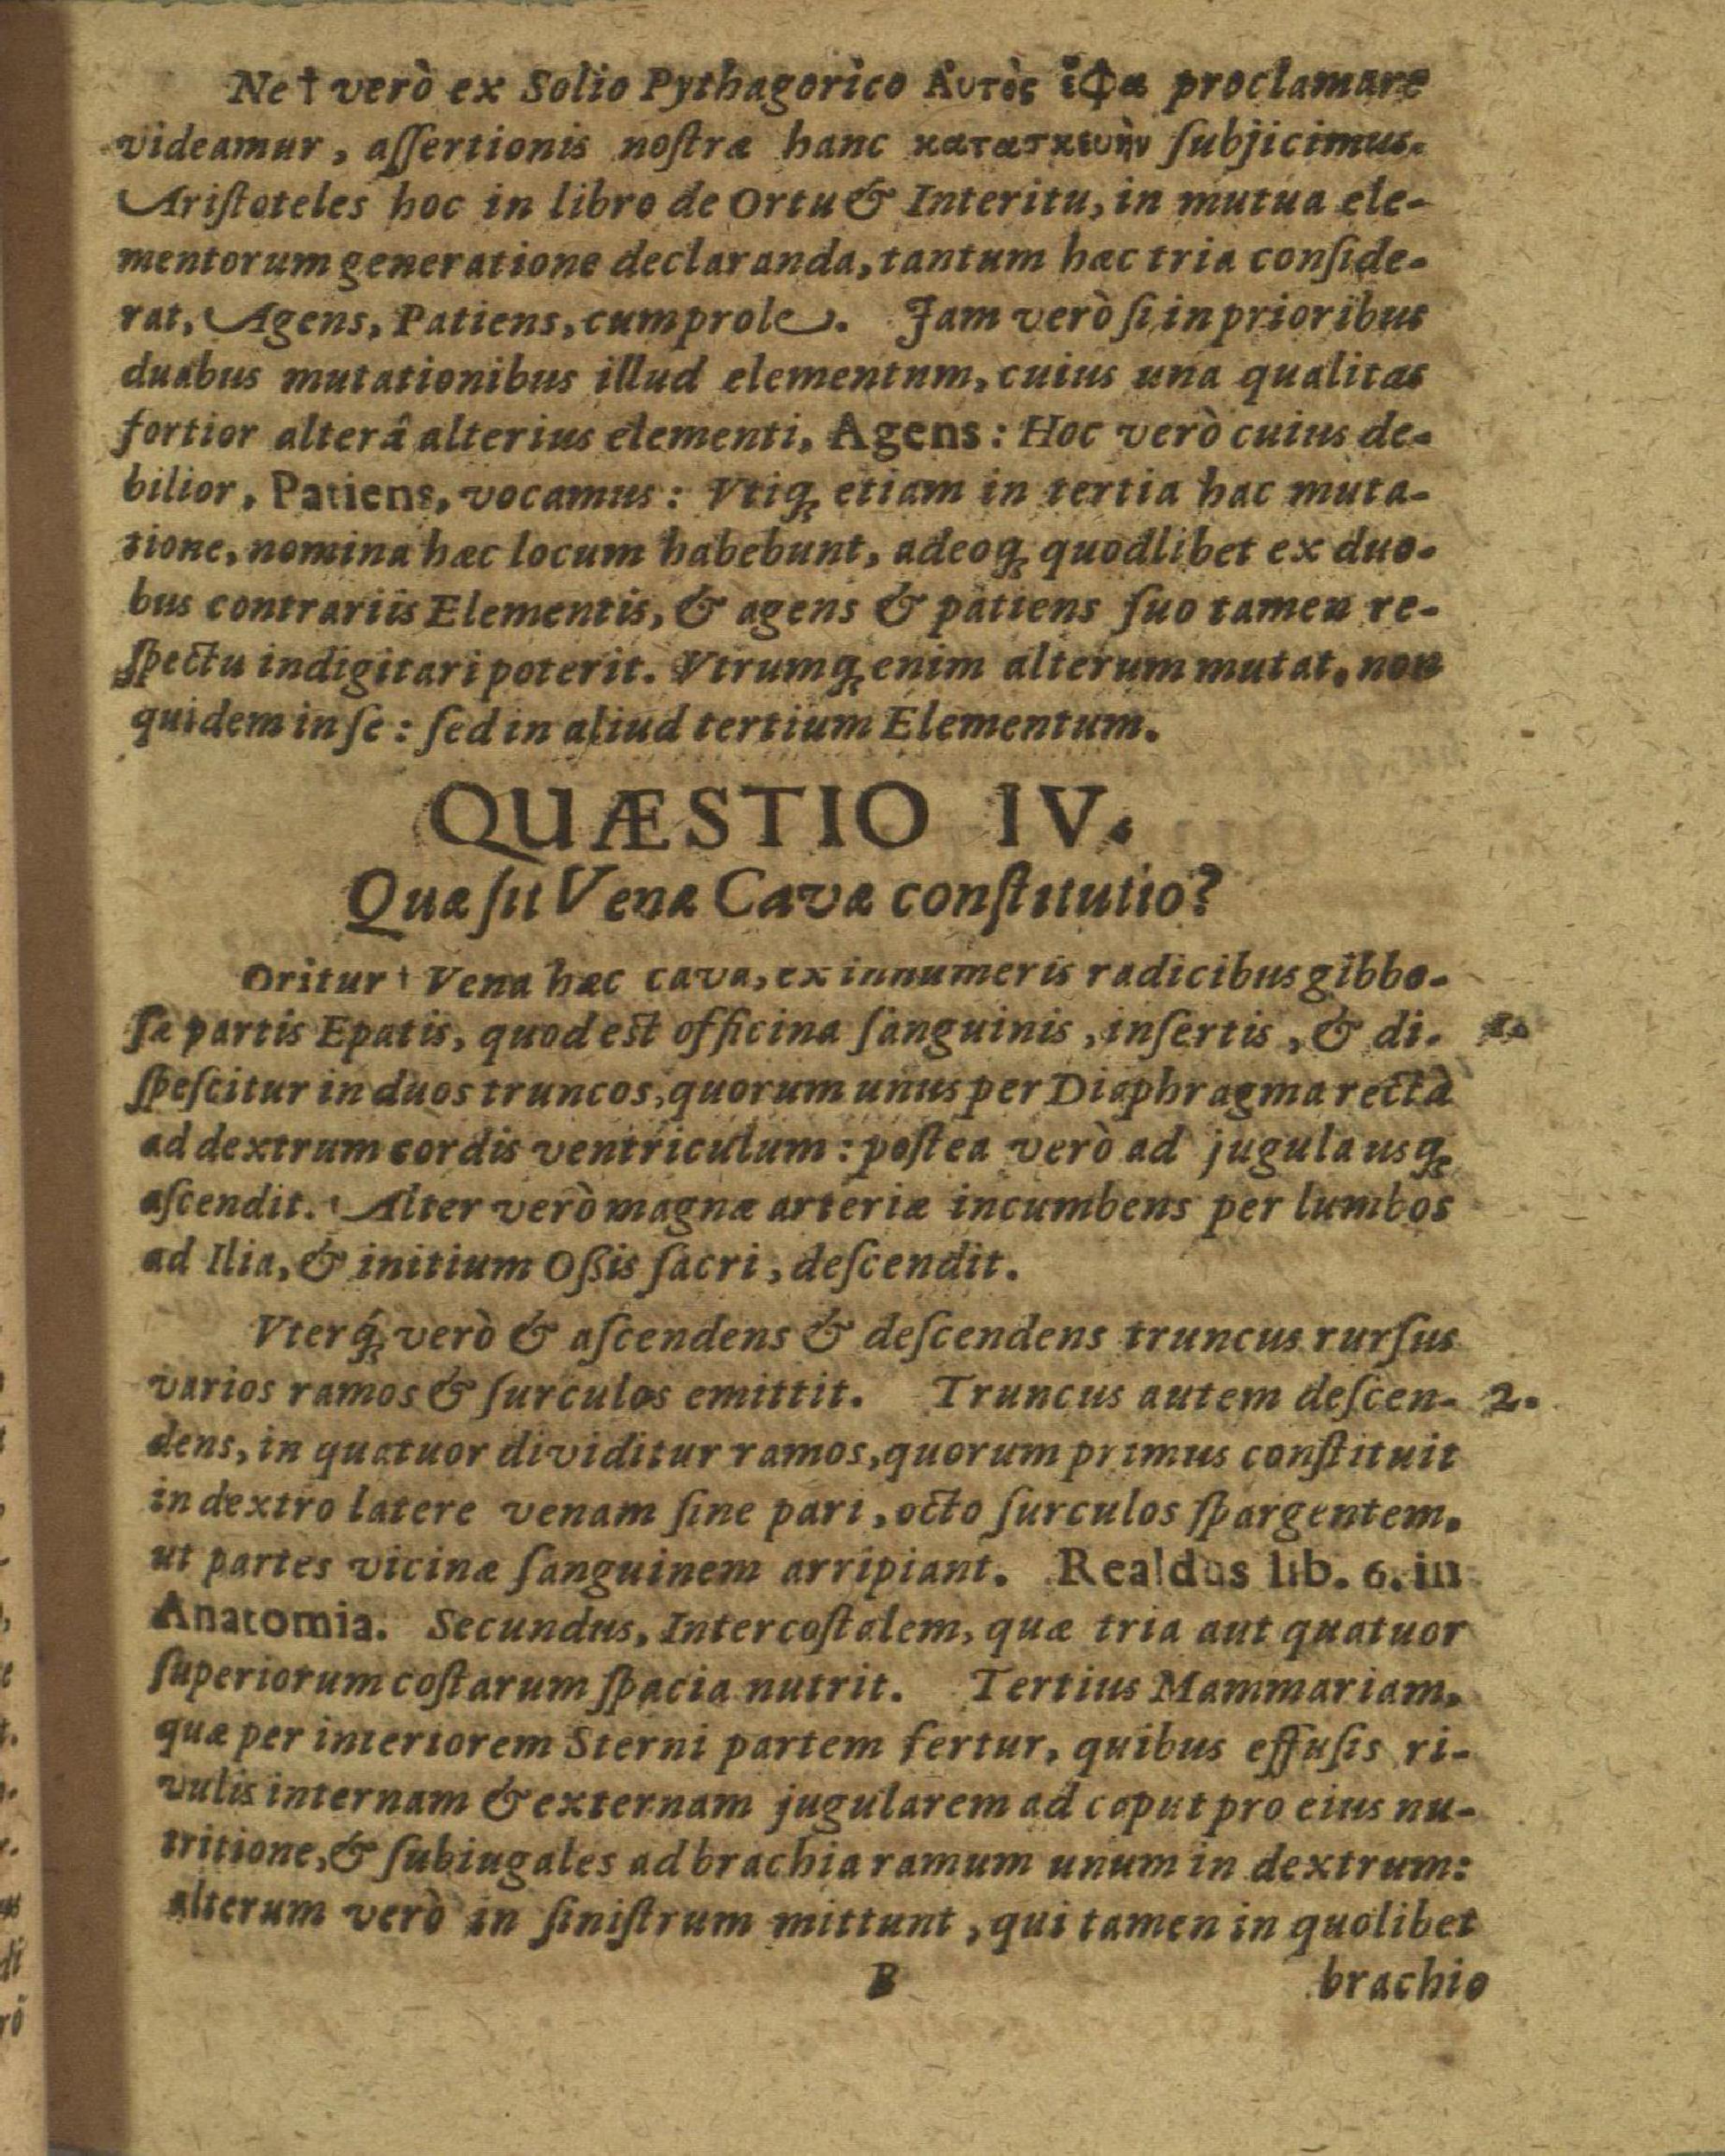 Ne † verò ex Solio Pythagorico Αυτὸς ἔφα proclamare
videamur, aſſertionis noſtræ hanc κατασκευὴν ſubjicimus.
Ariſtoteles hoc in libro de Ortu & Interitu, in mutua ele-
mentorum generatione declaranda, tantum hæc tria conſide-
rat, Agens, Patiens, cum prole. Jam verò ſi in prioribus
duabus mutationibus illud elementum, cuius una qualitas
fortior alterâ alterius elementi, Agens: Hoc verò cuius de-
bilior, Patiens, vocamus: Vtiq; etiam in tertia hac muta-
tione, nomina hæc locum habebunt, adeoq; quodlibet ex duo-
bus contrariis Elementis, & agens & patiens ſuo tamen re-
ſpectu indigitari poterit. Vtrumq; enim alterum mutat, non
quidem in ſe: ſed in aliud tertium Elementum.
QUÆSTIO IV.
Quæ ſit Venæ Cavæ conſtitutio?
Oritur † Vena hæc cava, ex innumeris radicibus gibbo-
ſæ partis Epatis, quod eſt officina ſanguinis, inſertis, & di- 1.
ſpeſcitur in duos truncos, quorum unus per Diaphragma rectà
ad dextrum cordis ventriculum: poſtea verò ad jugula usq;
aſcendit. Alter verò magnæ arteriæ incumbens per lumbos
ad Ilia, & initium Oſsis ſacri, deſcendit.
Vterq́; verò & aſcendens & deſcendens truncus rurſus
varios ramos & ſurculos emittit. Truncus autem deſcen- 2.
dens, in quatuor dividitur ramos, quorum primus conſtituit
in dextro latere venam ſine pari, octo ſurculos ſpargentem,
ut partes vicinæ ſanguinem arripiant. Realdus lib. 6. in
Anatomia. Secundus, Intercoſtalem, quæ tria aut quatuor
ſuperiorum coſtarum ſpacia nutrit. Tertius Mammariam,
quæ per interiorem Sterni partem fertur, quibus effuſis ri-
vulis internam & externam jugularem ad caput pro eius nu-
tritione, & ſubiugales ad brachia ramum unum in dextrum:
alterum verò in ſiniſtrum mittunt, qui tamen in quolibet
B brachio